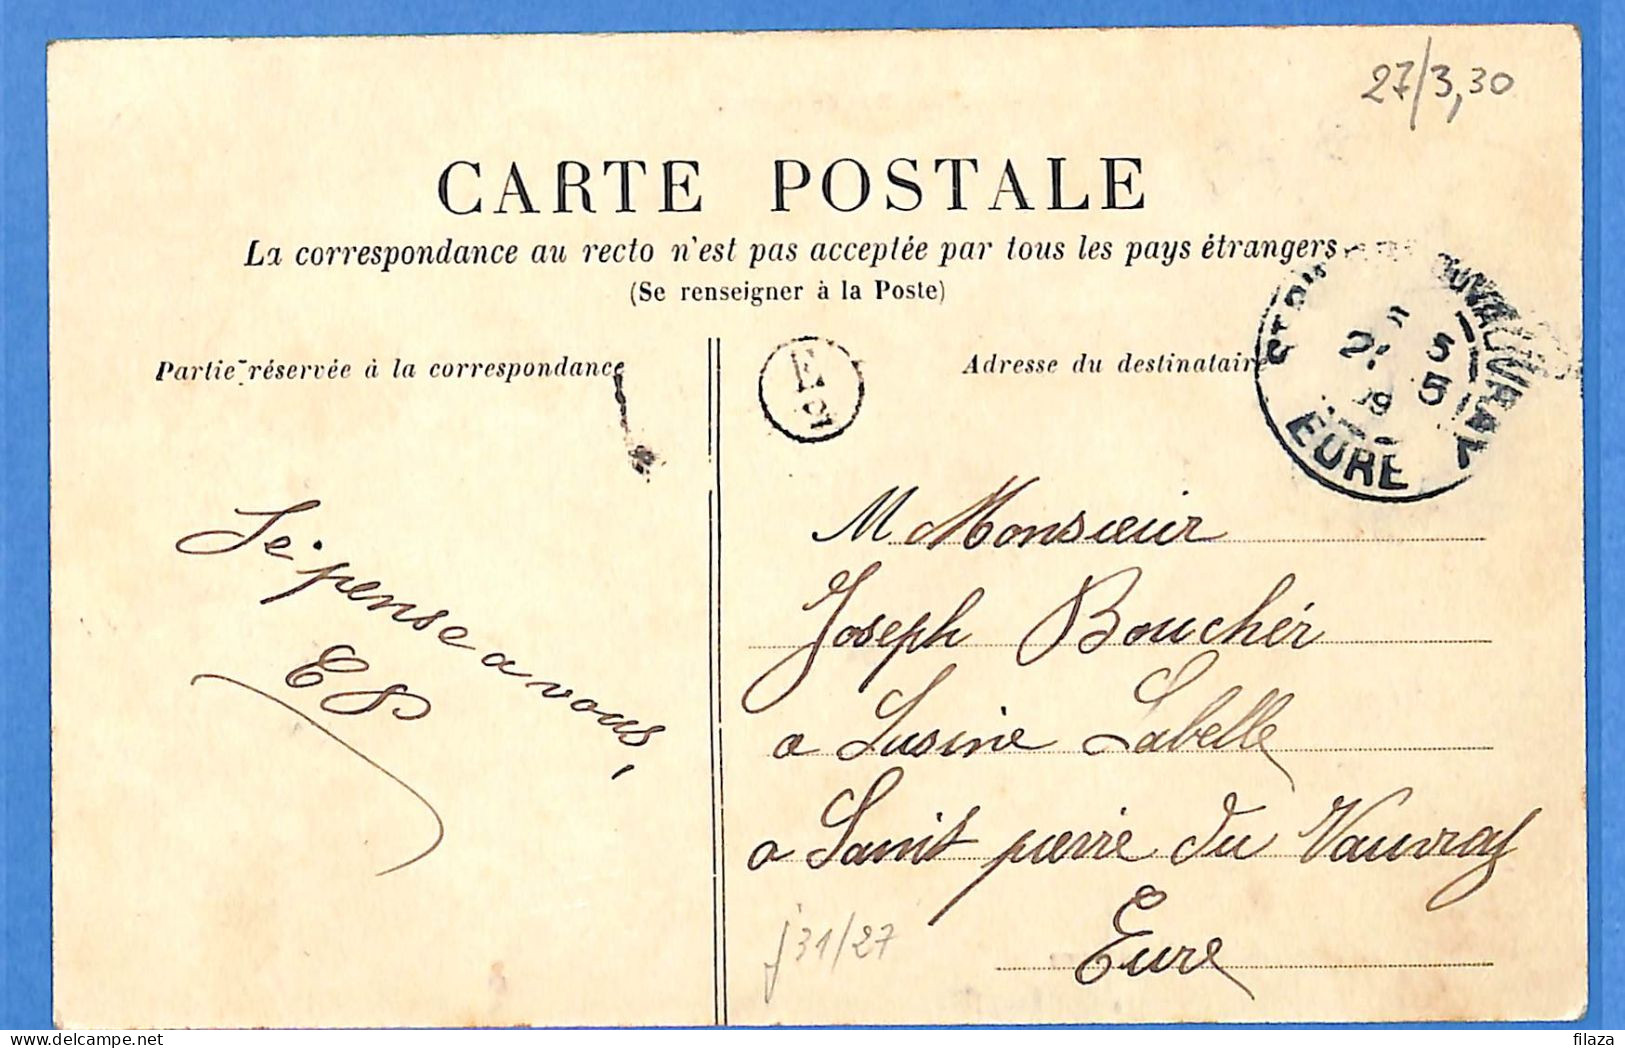 27/3,30
CARTE POSTALE
La correspondance au recto n'est pas acceptée par tous les pays étrangers
(Se renseigner à la Poste)
Partie réservée à la correspondance
Adresse du destinataire
EURE
Je pense a vous,
M Monsieur
Joseph Bouchér
a Lusine Labelle
a Sanit pierre du Vauvray
Eure
j31/27
filaza